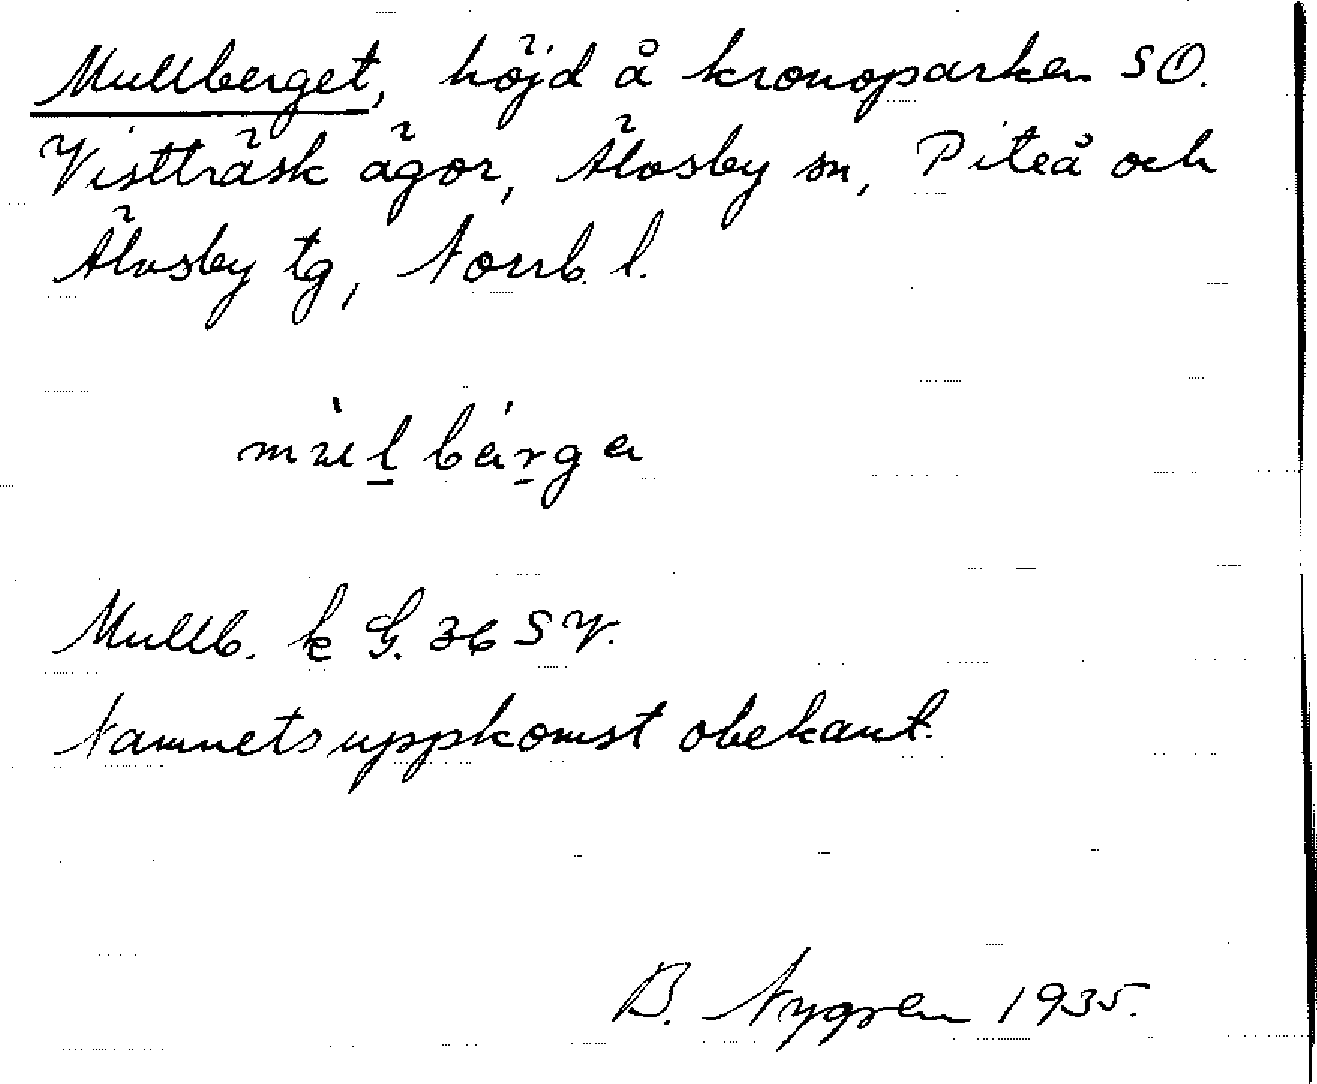 Mullberget, höjd å kronoparken SO.
Vistträsk ägor, Älvsby sn, Piteå och
Älvsby tg, Norrb. l.
Mullb. k G. 36 SV.
Namnets uppkomst obekant.
B. Nygren 1935.